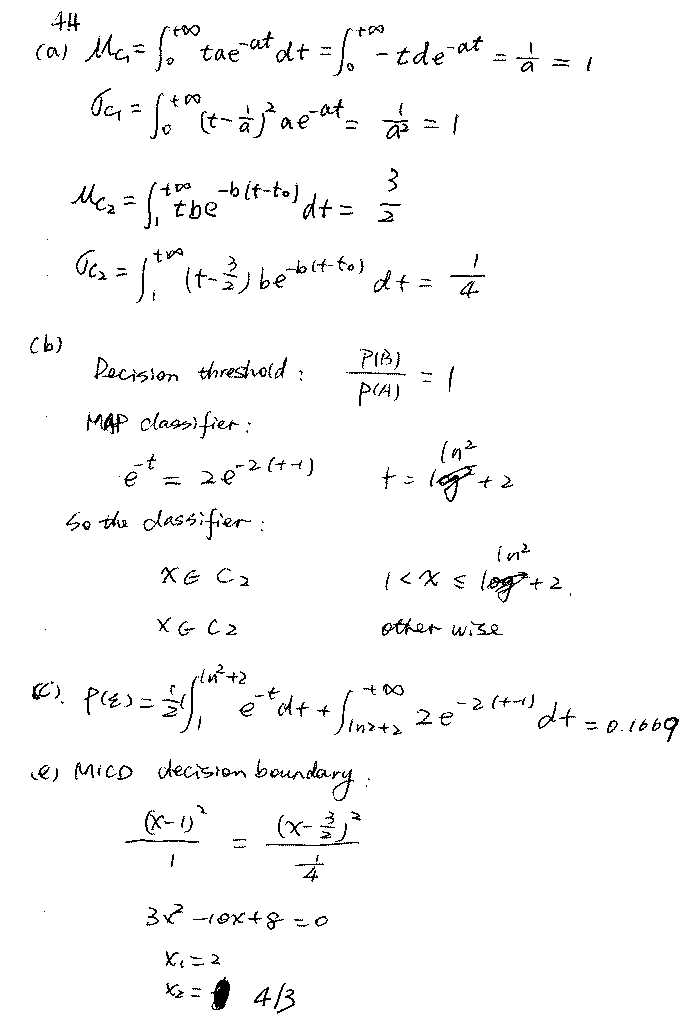 4H
(a) μ_{C₁} = ∫₀^{+∞} tae^{-at} dt = ∫₀^{+∞} -tde^{-at} = 1/a = 1
σ_{C₁} = ∫₀^{+∞} (t-1/a)² ae^{-at} = 1/a² = 1
μ_{C₂} = ∫₁^{+∞} tbe^{-b(t-t₀)} dt = 3/2
σ_{C₂} = ∫₁^{+∞} (t-3/2) be^{-b(t-t₀)} dt = 1/4
(b)
Decision threshold : P(B)/P(A) = 1
MAP classifier :
e^{-t} = 2e^{-2(t-1)} t = ln2 + 2
So the classifier :
X ∈ C₂ 1 < X ≤ ln2 + 2.
X ∈ C₂ other wise
(c). P(ε) = 1/2 (∫₁^{ln2+2} e^{-t} dt + ∫_{ln2+2}^{+∞} 2e^{-2(t-1)} dt = 0.1669
(e) MICD decision boundary :
(x-1)²/1 = (x-3/2)²/(1/4)
3x² -10x+8 = 0
X₁ = 2
X₂ = 4/3